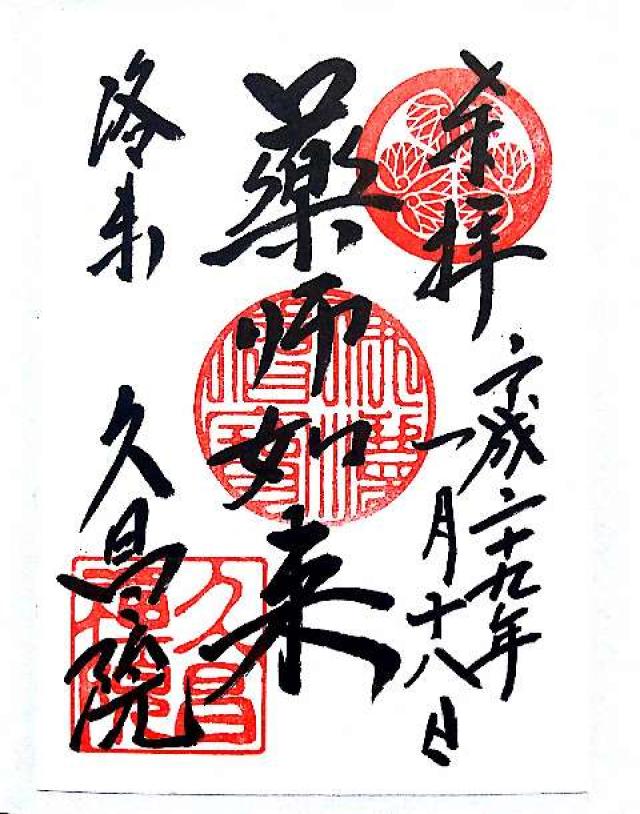 奉拝
平成二十九年
一月十八日
藥師如来
洛東
久昌院